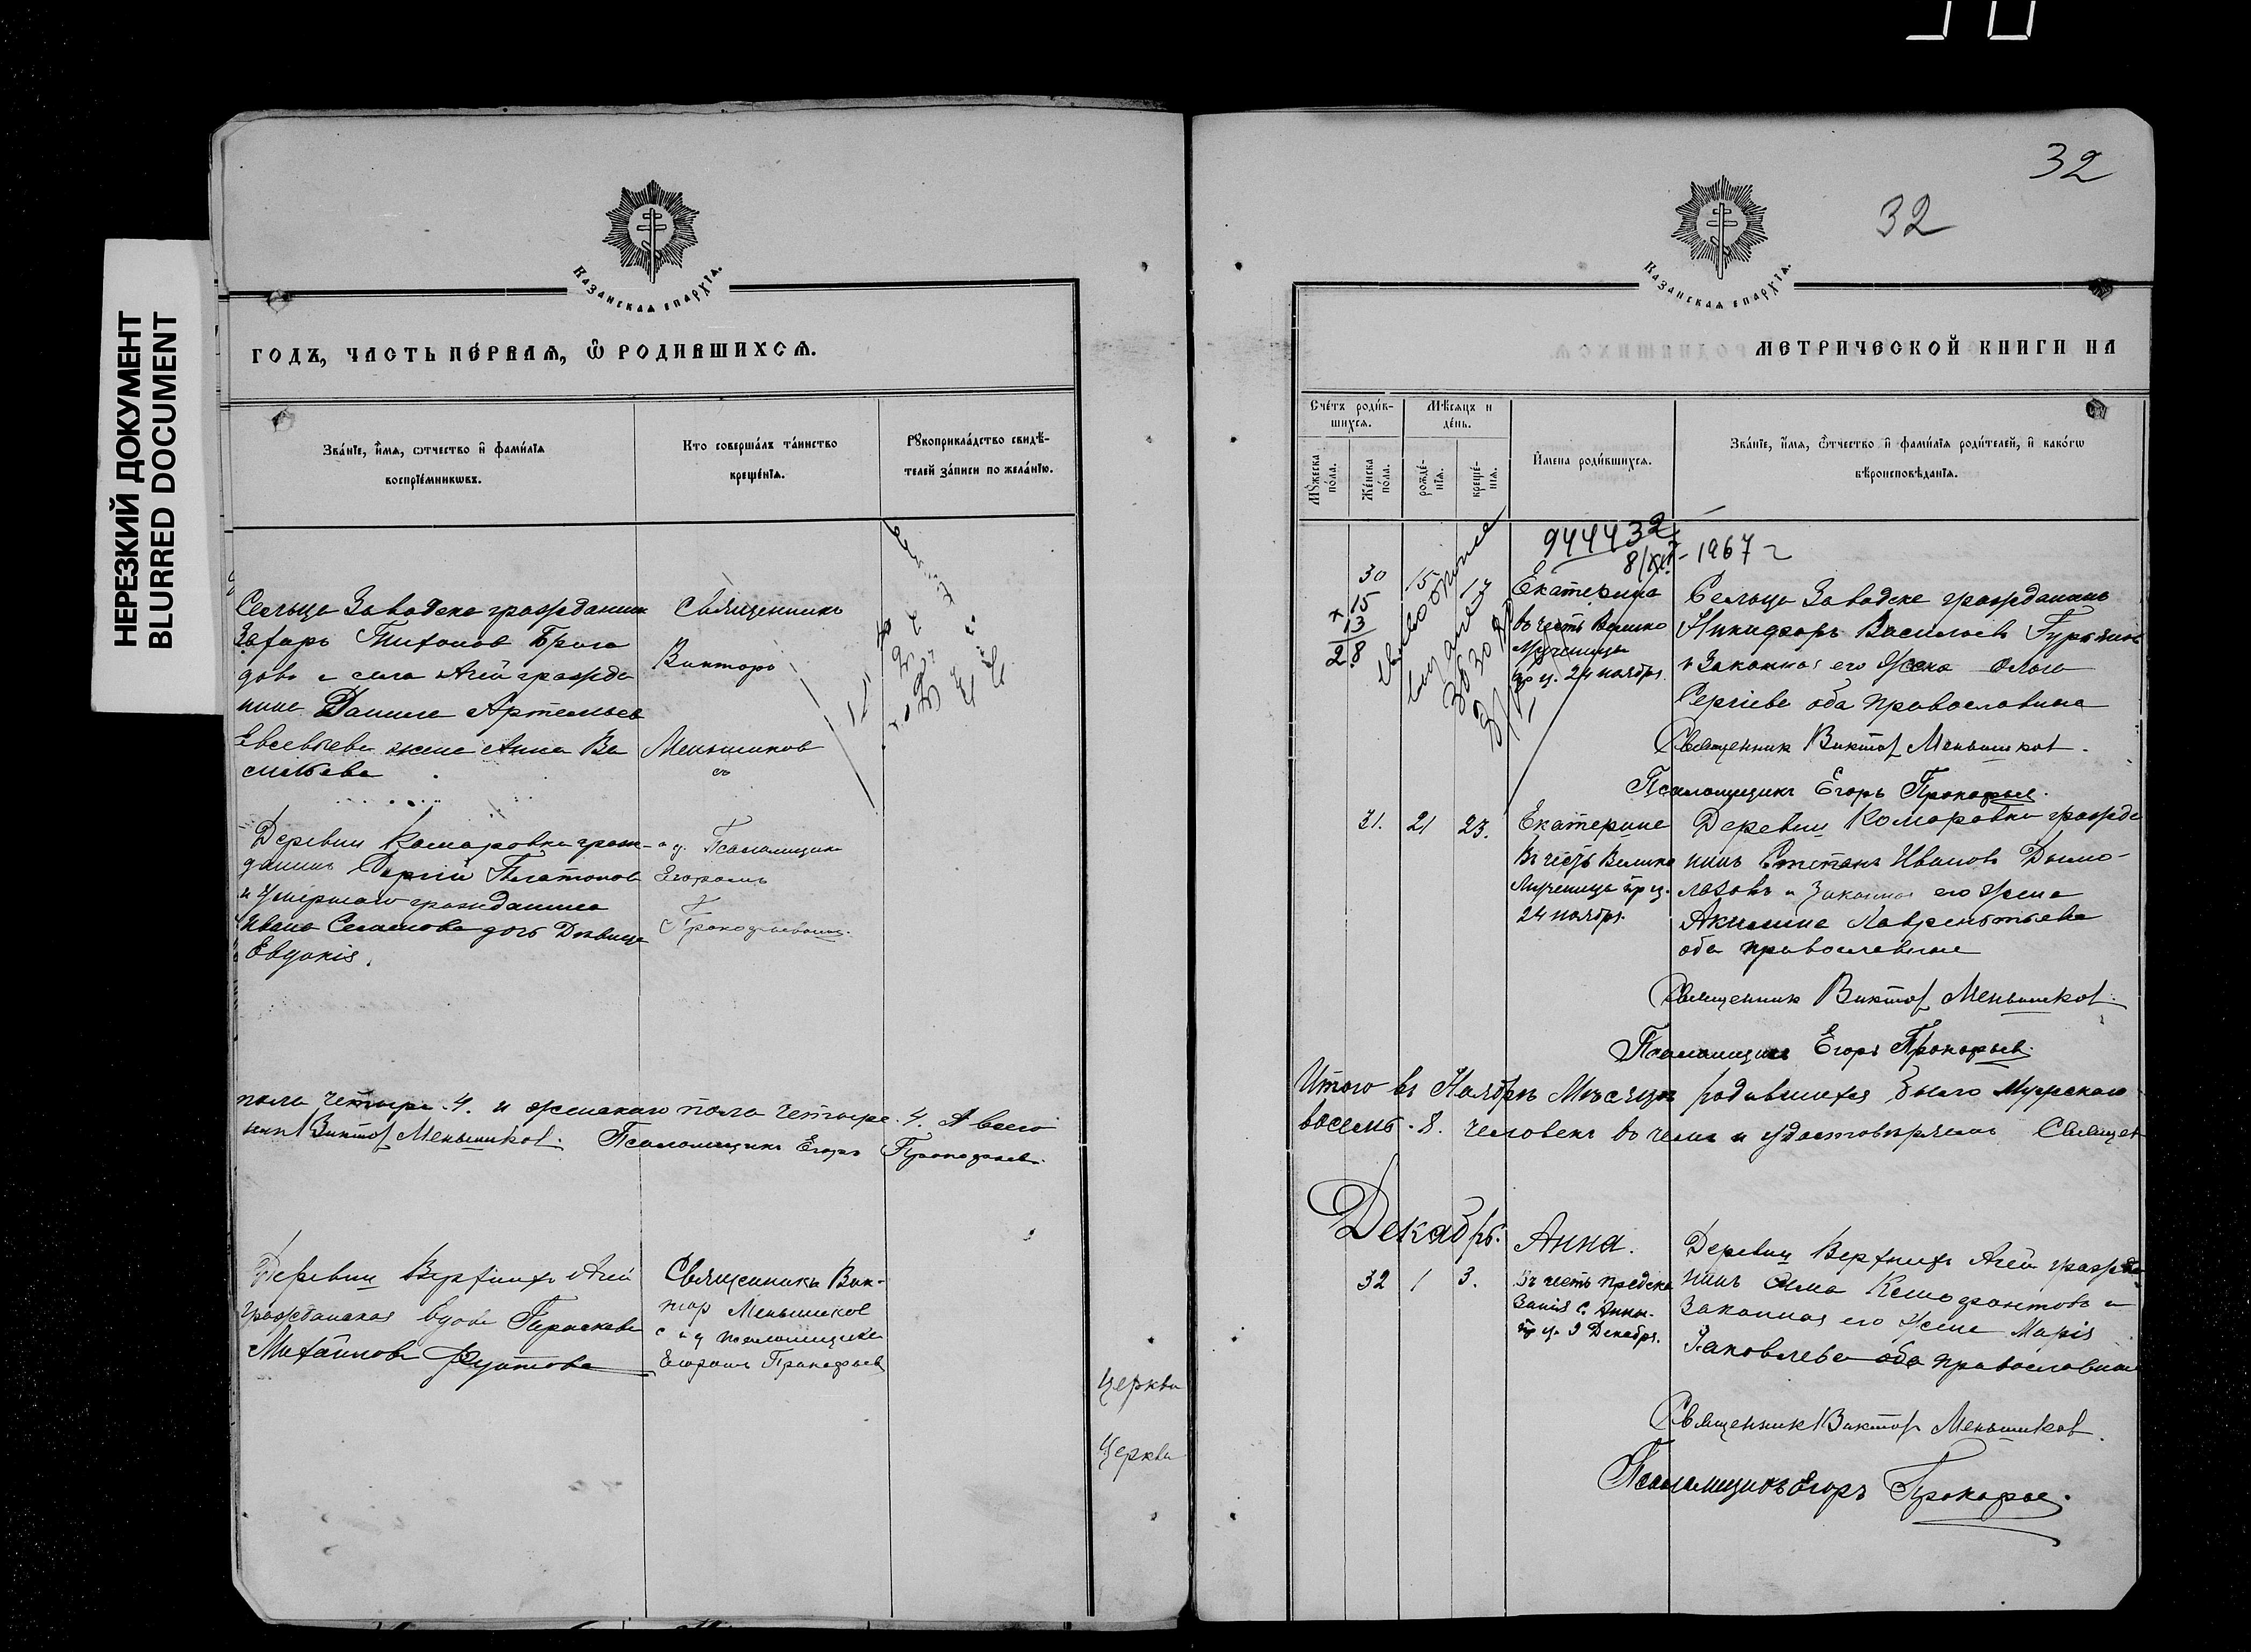 НЕРЕЗКИЙ ДОКУМЕНТ
BLURRED DOCUMENT
Казанская епархїѧ.
ГОДЪ, ЧАСТЬ ПЕ́РВАѦ, Ѽ РОДИВШИХСѦ.
Зва́нїе, и҆́мѧ, ѻтчество и҆ фами́лїѧ
воспрїе́мникѡвъ.
Кто соверша́лъ та́инство
креще́нїѧ.
Рꙋкоприкла́дство свидѣ́-
телей за́писи по жела́нїю.
Сельца Заводска гражданин
Захаръ Тихонов
довъ и села Агей гражда
нина Данила Артемьев
Евсевьева жена Анна Ва
сильева
Священникъ
Викторъ
Меньшиков
съ
Деревни Комаровки граж-
данинъ Сергий Платонов
и умершаго гражданина
Ивана Семенова дочь Девица
Евдокія.
Псаломщик
Егоромъ
Прокофьевымъ.
пола четыре. 4. и женскаго пола четыре. 4. А всего
никъ Виктор Меньшиков. Псаломщикъ Егоръ Прокофьев.
Деревни Верхнихъ Агей
гражданская вдова Параскева
Михайлова
Священникъ Вик-
тор Меньшиков
с и д псаломщика
Егоромъ Прокофьев
Церкви
Церкви
32
32
Казанская епархїѧ.
МЕТРИЧЕСКОЙ КНИГИ НА
Сче́тъ роди́в-
шихсѧ.
Мꙋ́жеска
по́ла.
Же́нска
по́ла.
Мѣ́сѧцъ и
де́нь.
рожде́-
нїѧ.
креще́-
нїѧ.
И҆мена роди́вшихсѧ.
Зва́нїе, и҆́мѧ, ѻ҆́тчество и҆ фами́лїѧ роди́телей, и҆ како́гѡ
вѣроисповѣ́данїѧ.
944432
8/XII - 1967 г
30 15 17 Екатерина
15
13
28
въ честь Велико
Мученицы
пр ц. 24 ноября.
Сельца Заводске гражданинъ
Никифоръ Васильевъ
и законная его Жена Ольга
Сергіева оба православные
Священник Виктор Меньшиков.
Псаломщикъ Егоръ Прокофьев.
31. 21 23. Екатерина
Въ честь Велико
Мученицы пр ц.
24 ноября.
Деревни Комаровки гражда
нинъ Степанъ Ивановъ Дымо-
лазовъ и законная его Жена
Акилина Лаврентьева
оба православные
Священник Виктор Меньшиков.
Псаломщикъ Егоръ Прокофьев.
Итого въ Ноябрѣ Мѣсяцѣ родившихся было Мужскаго
восемь. 8. человекъ въ чемъ и удостовѣряемъ Священ
Декабрь.
32 1 3. Анна.
Въ честь предска
занія с. Анны.
пр ц. 9 Декабря.
Деревни Верхнихъ Агей гражда
нинъ Ксенофонтовъ и
законная его Жена Марія
Іаковлева оба православные
Священник Виктор Меньшиков.
Псаломщикъ Егоръ Прокофьев.